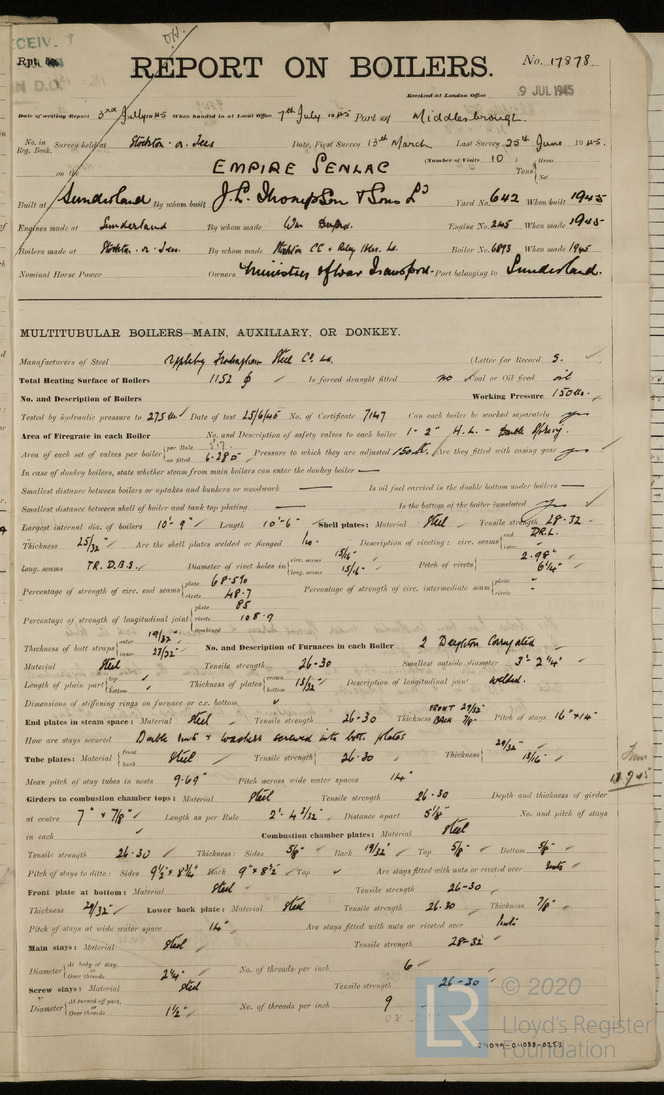 Rpt. 5a.
REPORT ON BOILERS.
No. 17878.
Received at London Office
9 JUL 1945
Date of writing Report 3rd July 1945 When handed in at Local Office 7th July 1945 Port of Middlesbrough.
No. in Reg. Book. Survey held at Stockton-on-Tees Date, First Survey 13th March Last Survey 25th June 1945.
on the EMPIRE SENLAC (Number of Visits 10) Tons Gross Net
Built at Sunderland By whom built J. L. Thompson & Sons Ld Yard No. 642 When built 1945
Engines made at Sunderland By whom made Engine No. 245 When made 1945
Boilers made at Stockton-on-Tees By whom made Stockton C.E. & Riley Blrs. Ld. Boiler No. 6893 When made 1945
Nominal Horse Power Owners Ministries of War Transport. Port belonging to Sunderland.
MULTITUBULAR BOILERS—MAIN, AUXILIARY, OR DONKEY.
Manufacturers of Steel Appleby Frodingham Steel Co. Ld. (Letter for Record S.
Total Heating Surface of Boilers 1152 Is forced draught fitted no Coal or Oil fired oil
No. and Description of Boilers Working Pressure 150 lbs.
Tested by hydraulic pressure to 275 lbs Date of test 25/6/45 No. of Certificate 7147 Can each boiler be worked separately yes
Area of Firegrate in each Boiler No. and Description of safety valves to each boiler 1 - 2" H.L. - Double Spring.
Area of each set of valves per boiler per Rule as fitted 6.28 Pressure to which they are adjusted 150 lb. Are they fitted with easing gear yes
In case of donkey boilers, state whether steam from main boilers can enter the donkey boiler —
Smallest distance between boilers or uptakes and bunkers or woodwork — Is oil fuel carried in the double bottom under boilers —
Smallest distance between shell of boiler and tank top plating — Is the bottom of the boiler insulated yes
Largest internal dia. of boilers 10'-9" Length 10'-6" Shell plates: Material Steel Tensile strength 28-32
Thickness 25/32" Are the shell plates welded or flanged No. Description of riveting: circ. seams end inter. D.R.L.
long. seams TR. D.B.S. Diameter of rivet holes in circ. seams 15/16" long. seams 15/16" Pitch of rivets 2.98" 6 1/4"
Percentage of strength of circ. end seams plate 68.5% rivets 48.7 Percentage of strength of circ. intermediate seam plate rivets
Percentage of strength of longitudinal joint plate 85 rivets 108.7 combined
Thickness of butt straps outer 19/32" inner 23/32" No. and Description of Furnaces in each Boiler 2 Deighton Corrugated
Material Steel Tensile strength 26-30 Smallest outside diameter 3'-2 1/4"
Length of plain part top bottom Thickness of plates crown bottom 13/32" Description of longitudinal joint welded.
Dimensions of stiffening rings on furnace or c.c. bottom
End plates in steam space: Material Steel Tensile strength 26-30 Thickness FRONT 29/32" BACK 7/8" Pitch of stays 16" x 14"
How are stays secured Double nuts & washers screwed into both plates
Tube plates: Material front back Steel Tensile strength 26-30 Thickness 29/32" 13/16"
Mean pitch of stay tubes in nests 9.69" Pitch across wide water spaces 14"
Girders to combustion chamber tops: Material Steel Tensile strength 26-30 Depth and thickness of girder
at centre 7" x 7/8" Length as per Rule 2'-4 3/32" Distance apart 5 1/8" No. and pitch of stays
in each Combustion chamber plates: Material Steel
Tensile strength 26-30 Thickness: Sides 5/8" Back 19/32" Top 5/8" Bottom 5/8"
Pitch of stays to ditto: Sides 9 1/2" x 8 3/4" Back 9" x 8 1/2" Top Are stays fitted with nuts or riveted over nuts
Front plate at bottom: Material Steel Tensile strength 26-30
Thickness 29/32" Lower back plate: Material Steel Tensile strength 26-30 Thickness 7/8"
Pitch of stays at wide water space 14" Are stays fitted with nuts or riveted over nuts
Main stays: Material Steel Tensile strength 28-32
Diameter At body of stay, or Over threads 2 1/4" No. of threads per inch 6
Screw stays: Material Steel Tensile strength 26-30
Diameter At turned off part, or Over threads 1 1/2" No. of threads per inch 9
LR © 2020
Lloyd's Register
Foundation